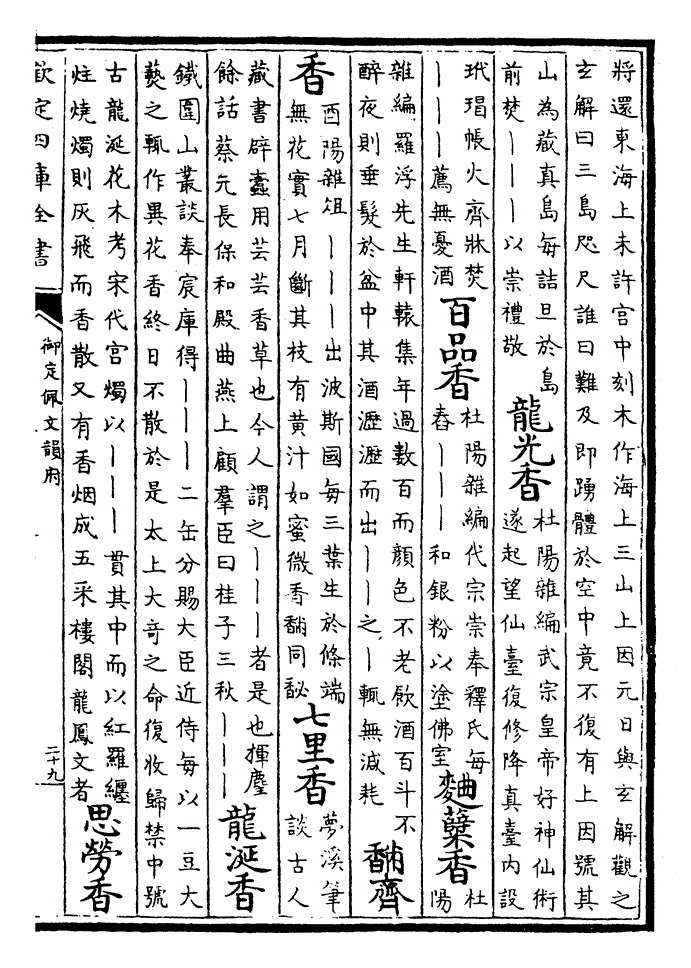 將還東海上未許宫中刻木作海上三山上因元日與玄解觀之
玄解曰三島咫尺誰曰難及即踴體於空中竟不復有上因號其
山為藏真島每詰旦於島
前焚｜｜｜以崇禮敬
龍光香
杜陽雜編武宗皇帝好神仙術
遂起望仙臺復修降真臺内設
玳瑁帳火齊牀焚
｜｜｜薦無憂酒
百品香
杜陽雜編代宗崇奉釋氏每
舂｜｜｜和銀粉以塗佛室
麯櫱香
杜
陽
雜編羅浮先生軒轅集年過數百而顔色不老飲酒百斗不
醉夜則垂髮於盆中其酒瀝瀝而出｜｜之｜輒無減耗
𩡝齊
香
酉陽雜俎｜｜｜出波斯國每三葉生於條端
無花實七月斷其枝有黄汁如蜜微香𩡝同馝
七里香
夢溪筆
談古人
藏書辟蠹用芸芸香草也今人謂之｜｜｜者是也揮麈
餘話蔡元長保和殿曲燕上顧羣臣曰桂子三秋｜｜｜
龍涎香
鐵圍山叢談奉宸庫得｜｜｜二缶分賜大臣近侍每以一豆大
爇之輒作異花香終日不散於是太上大奇之命復收歸禁中號
古龍涎花木考宋代宫燭以｜｜｜貫其中而以紅羅纏
炷燒燭則灰飛而香散又有香烟成五采樓閣龍鳳文者
思勞香
欽定四庫全書
御定佩文韻府
二十九